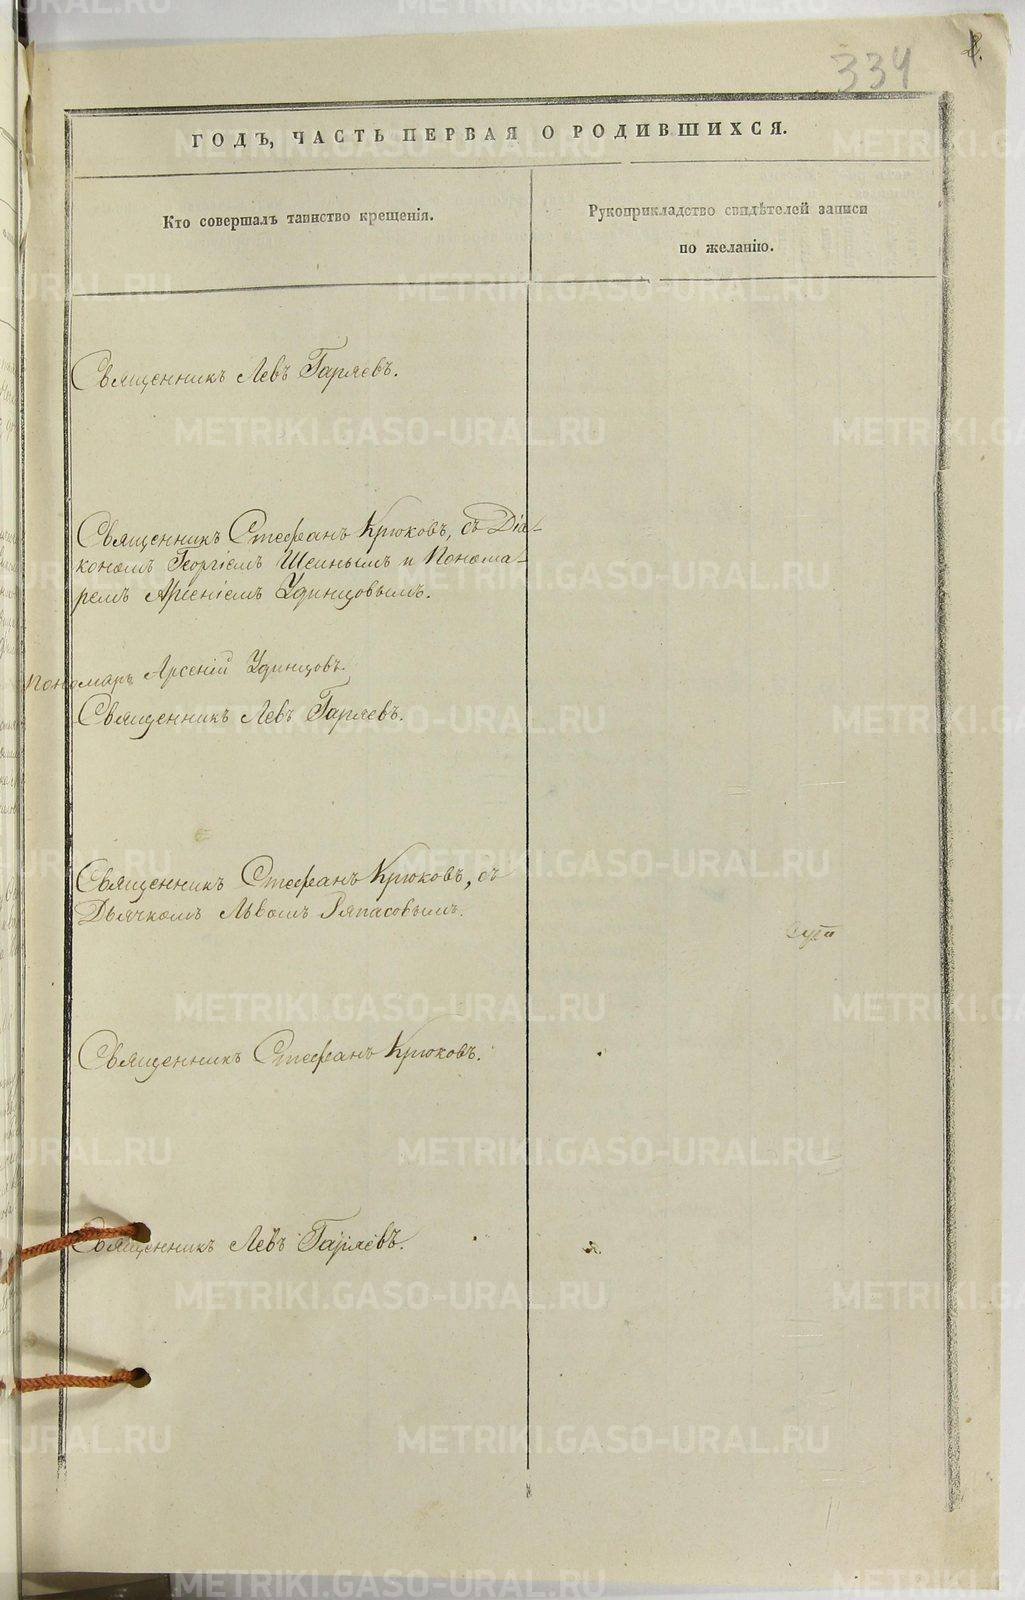 334
ГОДЪ, ЧАСТЬ ПЕРВАЯ О РОДИВШИХСЯ.
Кто совершалъ таинство крещенія.
Рукоприкладство свидѣтелей записи
по желанію.
Священникъ Левъ Гаряевъ.
Священникъ Стефанъ Крюковъ, съ Діа-
кономъ Георгіемъ Шеинымъ и Понома-
ремъ Арсеніемъ Удинцовымъ.
Пономарь Арсеній Удинцовъ.
Священникъ Левъ Гаряевъ.
Священникъ Стефанъ Крюковъ, съ
Дьячкомъ Львомъ Ряпасовымъ.
Священникъ Стефанъ Крюковъ.
Священникъ Левъ Гаряевъ.
METRIKI.GASO-URAL.RU